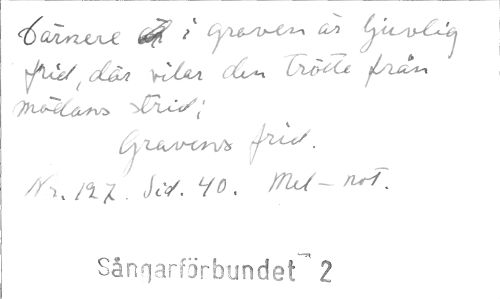 Därnere i graven är ljuvlig
frid, där vilar den trötte från
mödans strid;
Gravens frid.
Nr. 127. Sid. 40. Mel-not.
Sångarförbundet 2